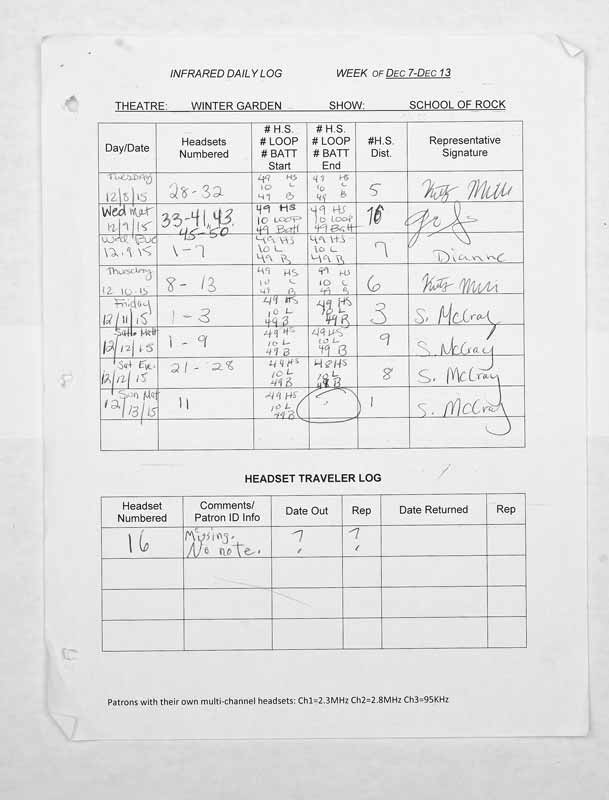 INFRARED DAILY LOG WEEK OF DEC 7-DEC 13
THEATRE: WINTER GARDEN SHOW: SCHOOL OF ROCK
Day/Date Headsets Numbered # H.S. # LOOP # BATT Start # H.S. # LOOP # BATT End #H.S. Dist. Representative Signature
Tuesday 12/8/15 28-32 49 HS 10 L 49 B 49 HS 10 L 49 B 5
Wed Mat 12/9/15 33-41, 43, 45-50 49 HS 10 LOOP 49 Batt 49 HS 10 LOOP 49 Batt 16
12.9.15 1-7 49 HS 10 L 49 B 49 HS 10 L 49 B 7 Dianne
Thursday 12.10.15 8-13 49 HS 10 L 49 B 49 HS 10 L 49 B 6
Friday 12/11/15 1-3 49 HS 10 L 49 B 49 HS 10 L 49 B 3 S. McCray
12/12/15 1-9 49 HS 10 L 49 B 49 HS 10 L 49 B 9 S. McCray
Sat Eve. 12/12/15 21-28 49 HS 10 L 49 B 48 HS 10 L 48 B 8 S. McCray
Sun Mat 12/13/15 11 49 HS 10 L 49 B 1 S. McCray
HEADSET TRAVELER LOG
Headset Numbered Comments/ Patron ID Info Date Out Rep Date Returned Rep
16 Missing. No note. ? ?
Patrons with their own multi-channel headsets: Ch1=2.3MHz Ch2=2.8MHz Ch3=95KHz